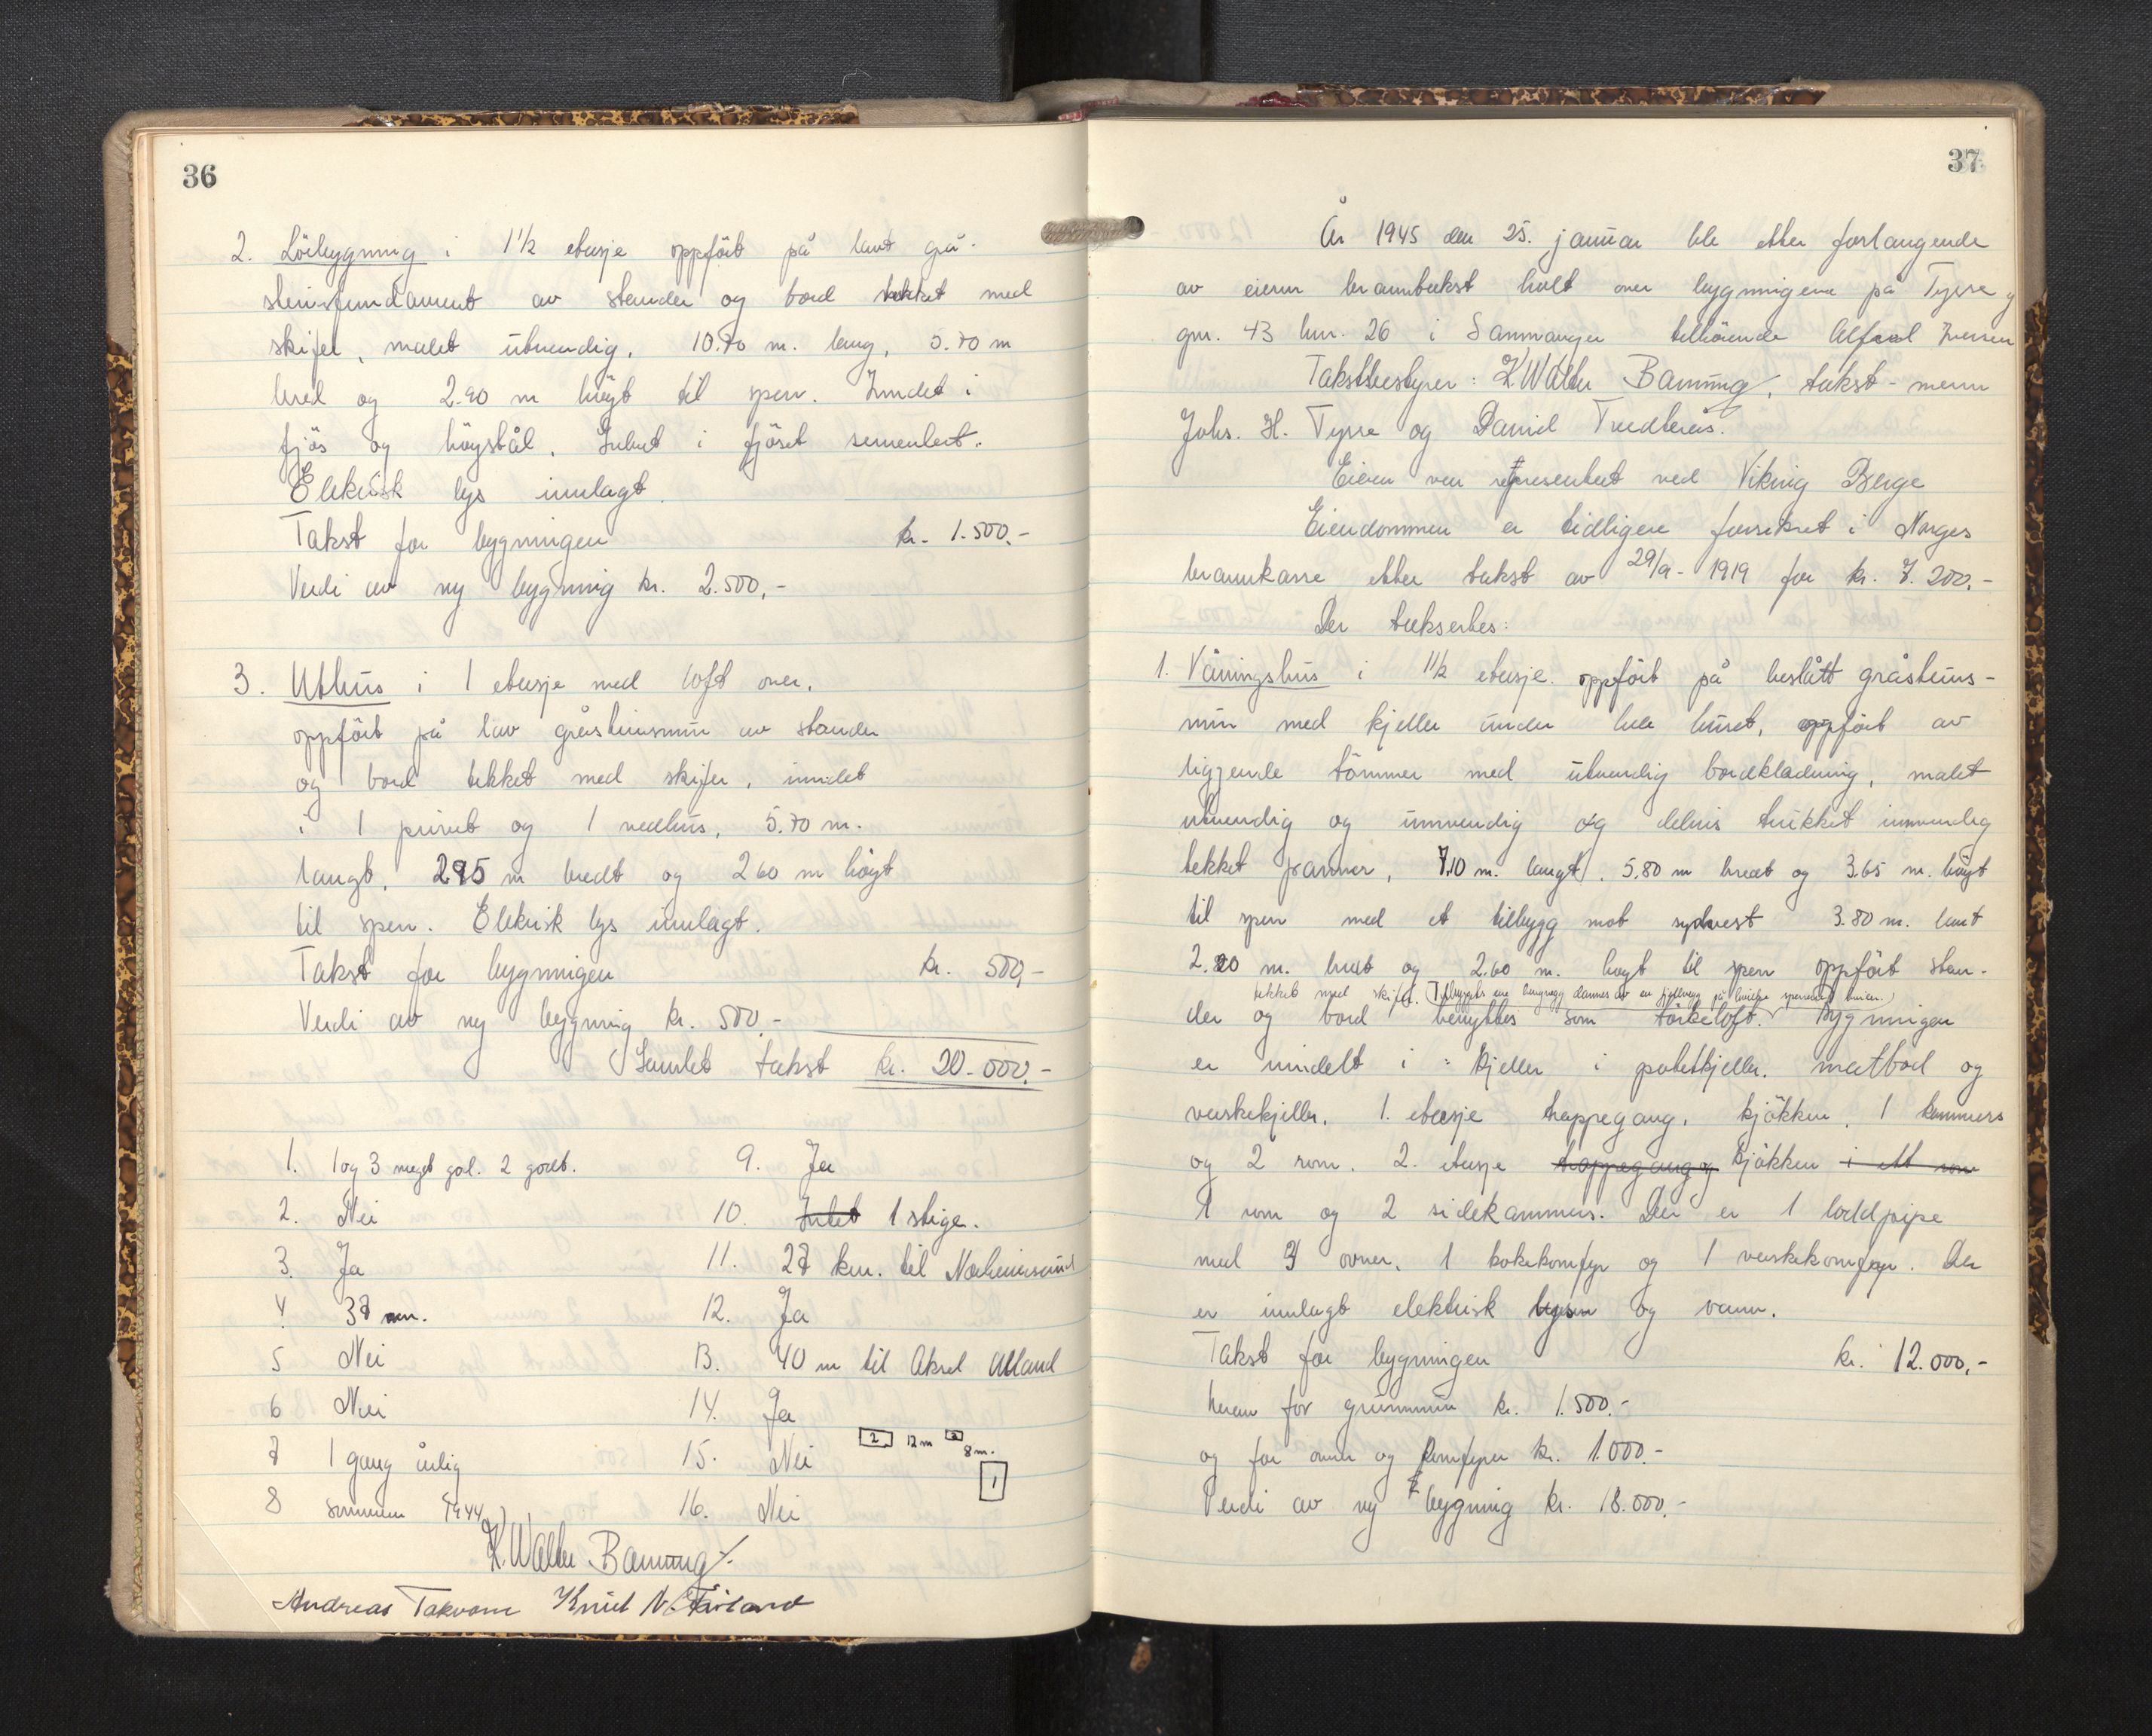 36
2. Löebygning i 1½ etasje oppfört på lavt grå-
stensfundament av stender og bord tekket med
skifer, malet utvendig, 10.70 m. lang, 5.70 m
bred og 2.90 m höyt til sperr. Inndet i
fjös og höystål. Gulvet i fjöset sementert.
Elektrisk lys innlagt.
Takst for bygningen kr. 1.500.-
Verdi av ny bygning kr. 2.500,-
3. Uthus i 1 etasje med loft over,
oppfört på lav gråsteinsmur av stender
og bord tekket med skifer, inndet
i 1 privet og 1 vedhus, 5.70 m.
langt, 295 m bredt og 260 m höyt
til sperr. Elekrisk lys innlagt.
Takst for bygningen kr. 500,-
Verdi av ny bygning kr. 500.-
Samlet takst kr. 20.000.-
1. 1 og 3 meget god. 2 godt. 9. Ja
2. Nei 10. Intet 1 stige.
3. Ja 11. 27 km. til Norheimsund
4. 37 m. 12. Ja
5 Nei 13. 40 m til Aksel Aaland
6 Nei 14. Ja
7 1 gang årlig 15. Nei
2 12 m 3 8 m. 1
8 sommeren 1944 16. Nei
K. Walter Banning
Andreas Takvam Knut N.
37
År 1945 den 25. januar ble etter forlangende
av eieren branntakst holt over bygningene på Tysse
gnr. 43 bnr. 26 i Samnanger tilhörende Alfred Iversen
Takstbestyrer: K Walter Banning, takst-menn
Johs. H. Tysse og Daniel Tvedterås.
Eieren var representert ved Viking Berge
Eiendommen er tidligere forsikret i Norges
brannkasse etter takst av 29/9-1919 for kr. 7.200.-
Der takseres:
1. Våningshus i 1½ etasje oppfört på beslått gråsteins-
mur med kjeller under hele huset, oppfört av
liggende tömmer med utvendig bordkladning, malet
utvendig og innvendig og delvis trukket innvendig
tekket panner, 7.10 m. langt, 5.80 m bredt og 3.65 m. höyt
til sperr med et tilbygg mot sydvest 3.80 m. lant
2.20 m. bredt og 2.60 m. hoyt til sperr oppfört sten-
tekket med skifer. (Tilbyggets ene langvegg dannes av en fjellvegg på hvilke sperrene hviler.)
der og bord benyttes som törkeloft. Bygningen
er inndelt i: kjeller i potetkjeller, matbod og
vaskekjeller, 1. etasje trappegang, kjökken, 1 kammers
og 2 rom. 2. etasje trappegang og kjökken i ett rom
1 rom og 2 sidekammers. Der er 1 loddpipe
med 3 ovner, 1 kokekomfyr og 1 vaskekomfyr. Der
er innlagt elektrisk lys og vann.
Takst for bygningen kr. 12.000,-
herav for grunnmur kr. 1.500.-
og for ovner og komfyrer kr. 1.000.-
Verdi av ny bygning kr. 18.000.-